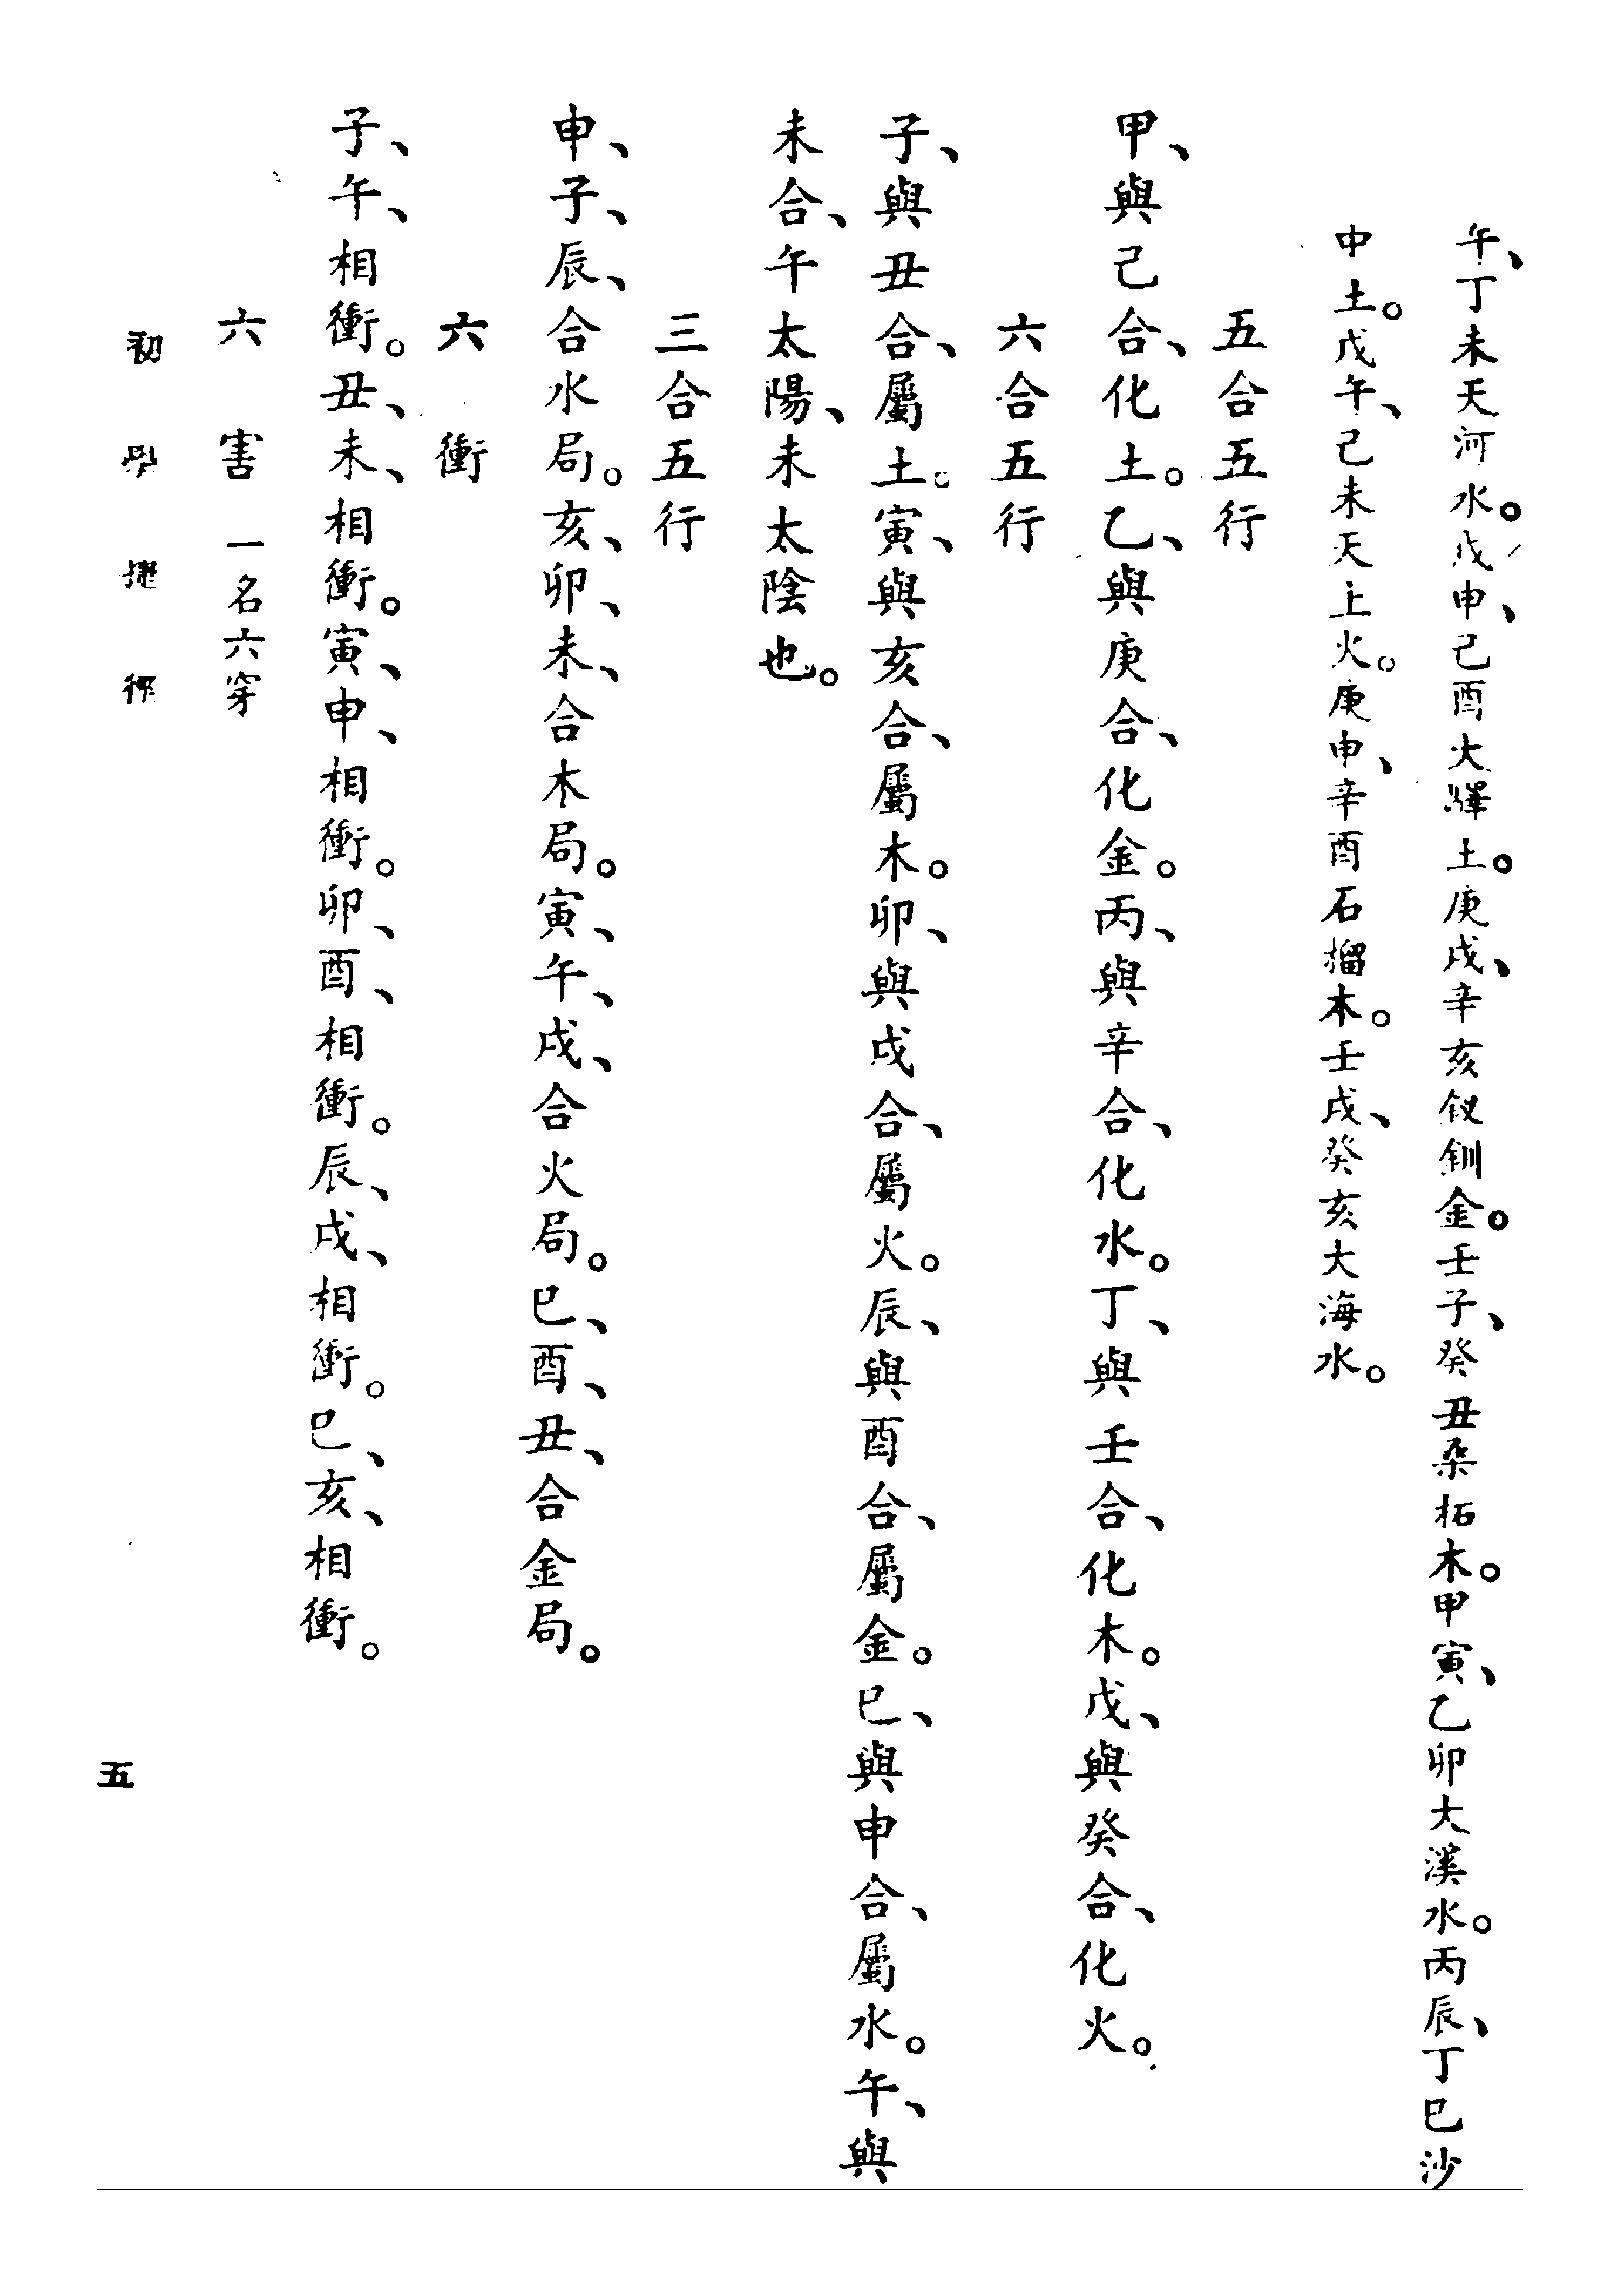 午、丁未天河水。戊申、己酉大驛土。庚戌、辛亥釵釧金。壬子、癸丑桑柘木。甲寅、乙卯大溪水。丙辰、丁巳沙
中土。戊午、己未天上火。庚申、辛酉石榴木。壬戌、癸亥大海水。
五合五行
甲、與己合、化土。乙、與庚合、化金。丙、與辛合、化水。丁、與壬合、化木。戊、與癸合、化火。
六合五行
子、與丑合、屬土。寅、與亥合、屬木。卯、與戌合、屬火。辰、與酉合、屬金。巳、與申合、屬水。午、與
未合、午太陽、未太陰也。
三合五行
申、子、辰、合水局。亥、卯、未、合木局。寅、午、戌、合火局。巳、酉、丑、合金局。
六衝
子、午、相衝。丑、未、相衝。寅、申、相衝。卯、酉、相衝。辰、戌、相衝。巳、亥、相衝。
六害 一名六穿
初學捷徑
五